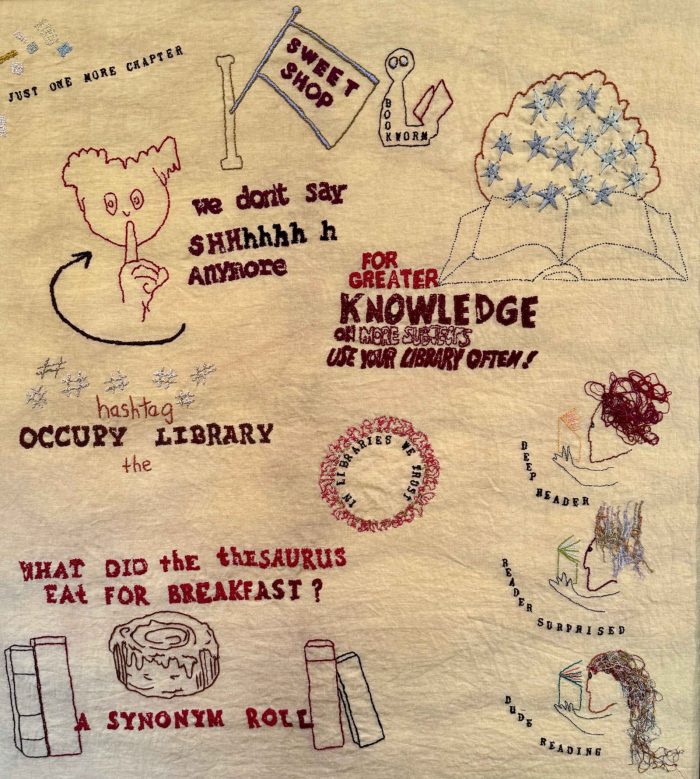 JUST ONE MORE CHAPTER
SWEET
SHOP
BOOKWORM
we don't say
SHHhhhh h
Anymore
FOR
GREATER
KNOWLEDGE
ON MORE SUBJECTS
USE YOUR LIBRARY OFTEN!
# # # # # # #
hashtag
OCCUPY LIBRARY
the
IN LIBRARIES WE TRUST
DEEP
READER
READER
SURPRISED
DUDE
READING
WHAT DID the thESAURUS
EAt FOR BREAKFAST?
A SYNONYM ROLL